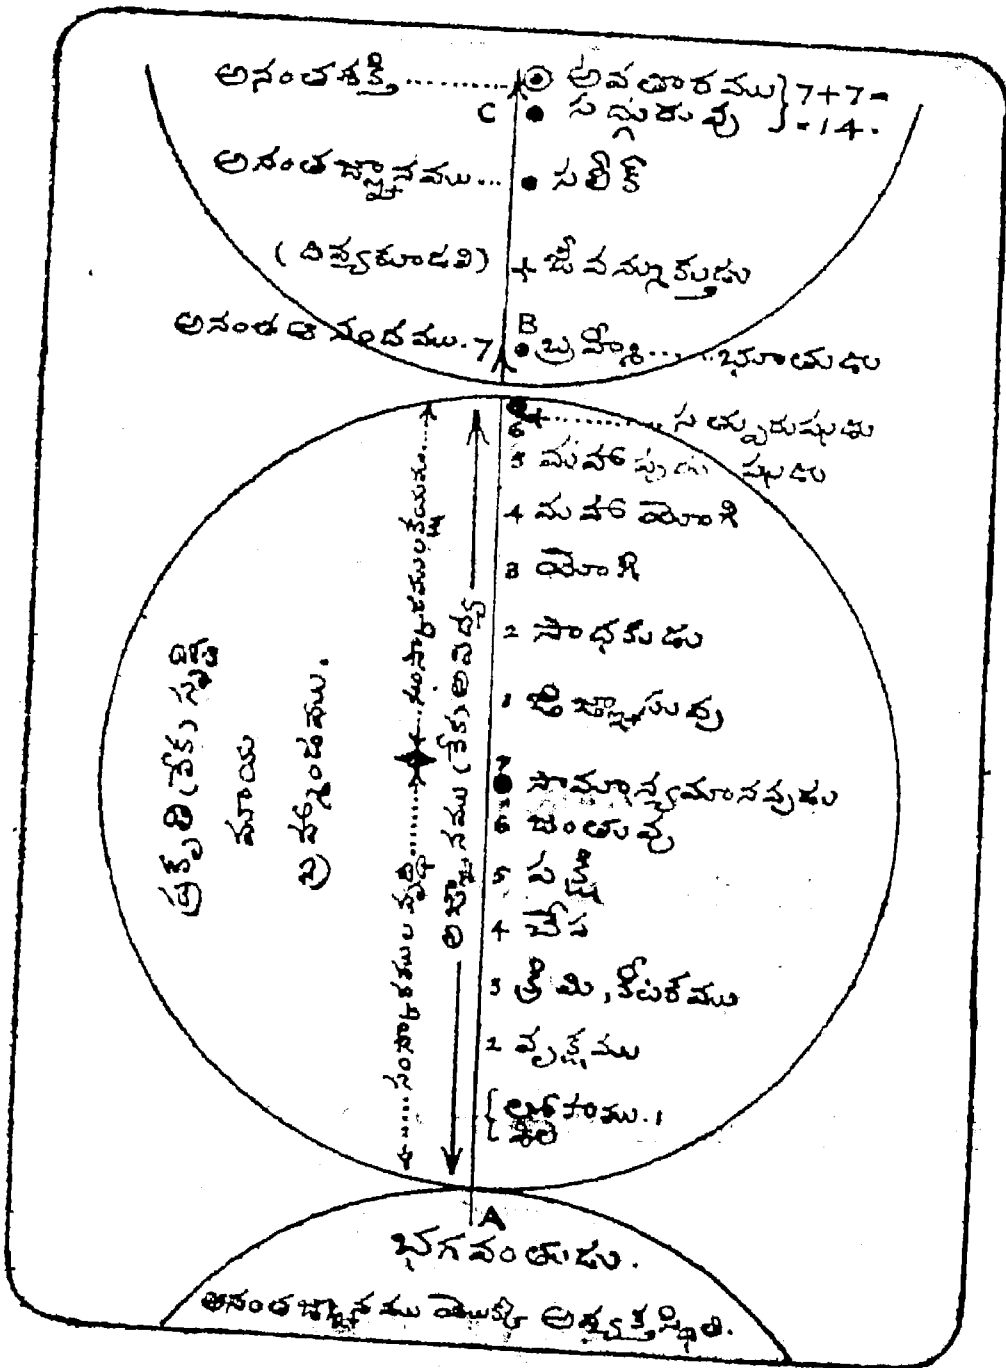 అనంతశక్తి .......... అవతారము } 7+7=
C • సద్గురువు } =14.
అనంతజ్ఞానము... • సలిక్
(దివ్యకూడలి) + జీవన్ముక్తుడు
B
అనంతఆనందము. 7 • బ్రహ్మీ........భూతుడు
6 ............. సత్పురుషుడు
5 మహాపురుషుడు
4 మహాయోగి
3 యోగి
2 సాధకుడు
1 జిజ్ఞాసువు
7 సామాన్యమానవుడు
6 జంతువు
5 పక్షి
4 చేప
3 క్రిమి, కీటకము
2 వృక్షము
{ లోహము. 1
శిల
ప్రకృతి (లేక) సృష్టి
మాయ
బ్రహ్మాండము.
సంస్కారముల వృద్ధి........సంస్కారములక్షయము...
అజ్ఞానము (లేక) అవిద్య
A
భగవంతుడు.
అనంతజ్ఞానము యొక్క అవ్యక్తస్థితి.